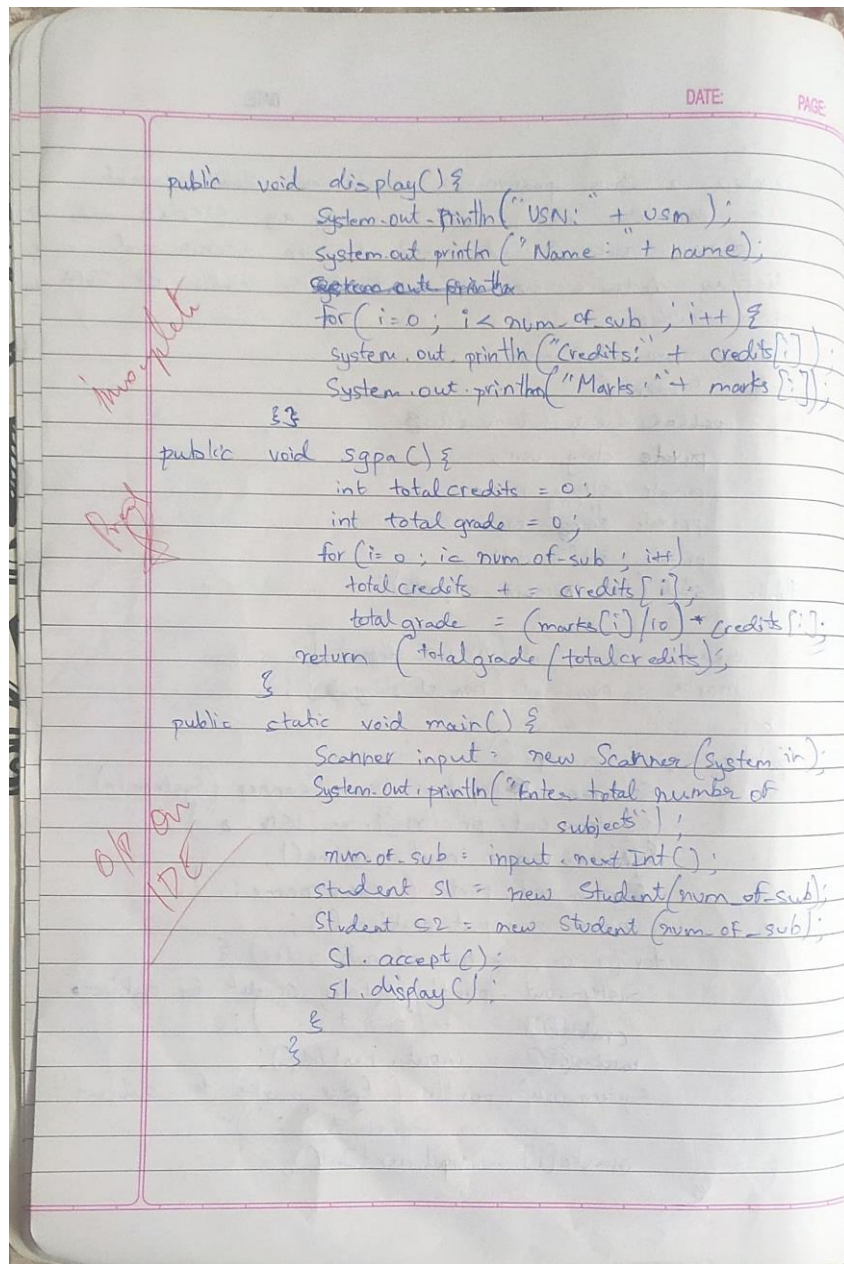 DATE: PAGE:
public void display() {
System.out.println("USN: " + usn );
System.out println ("Name : " + name);
for( i=0 ; i< num_of_sub ; i++ ) {
system.out.println ("Credits: " + credits[i]);
System.out.println("Marks : "+ marks [i]);
}}
public void sgpa() {
int totalcredits = 0;
int total grade = 0;
for (i=0 ; i< num_of_sub ; i++)
totalcredits + = credits[i];
totalgrade = (marks[i]/10) * credits[i];
return (totalgrade / totalcredits);
}
public static void main() {
Scanner input = new Scanner (System in);
System.out.println("Enter total number of
subjects");
num_of_sub = input.next Int();
student S1 = new Student(num_of_sub);
Student S2 = new Student (num_of_sub);
S1.accept();
S1.display();
}
}
incomplete
O/P on
IDE